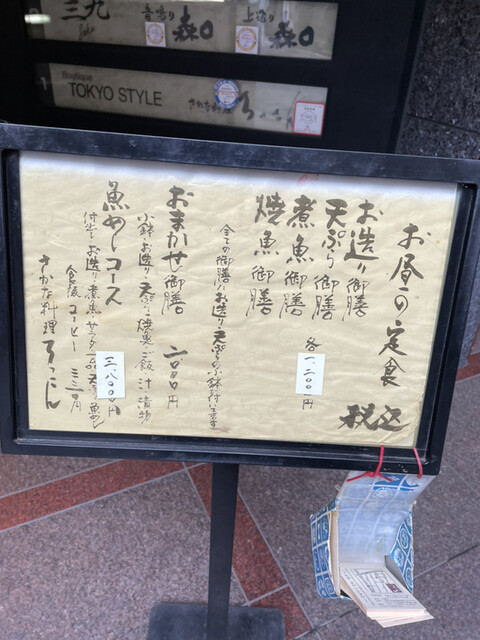 三九
音鳴り
森口
上辻り
森口
Boutique
TOKYO STYLE
お昼の定食
税込
お造り御膳
天ぷら御膳
煮魚御膳
焼魚御膳
各一、二〇〇円
全ての御膳にお造り天ぷらの小鉢が付きます
おまかせ御膳 二、〇〇〇円
小鉢 お造り 天ぷら 焼魚 ご飯 汁 漬物
魚めしコース 三、八〇〇円
付出し お造り 煮魚 サラダ 一品 天ぷら 魚めし
食後 コーヒー 三三〇円
さかな料理